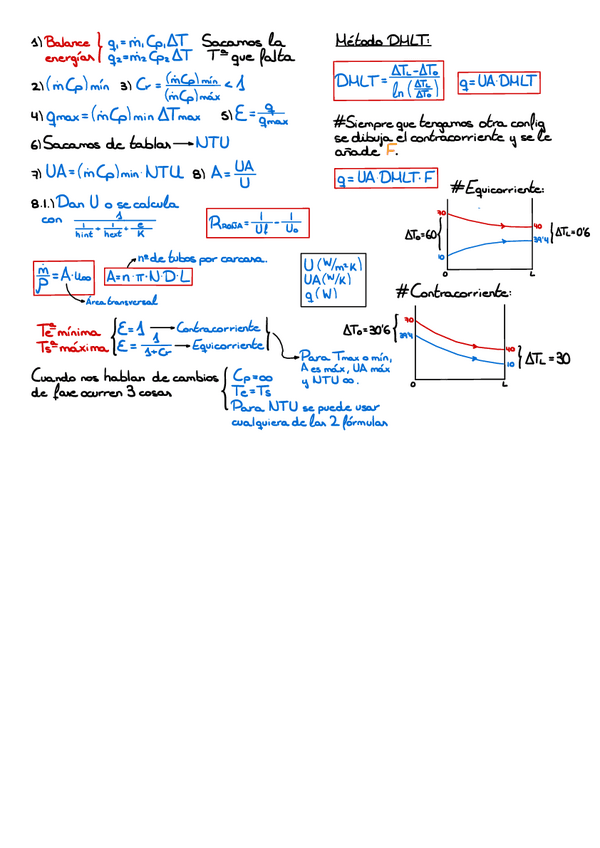 1) Balance energías { q₁ = ṁ₁ Cp₁ ΔT Sacamos la
q₂ = ṁ₂ Cp₂ ΔT Tª que falta
2) (ṁ Cp) mín 3) Cr = (ṁ Cp) mín / (ṁ Cp) máx < 1
4) qmax = (ṁ Cp) min ΔTmax 5) Ɛ = q / qmax
6) Sacamos de tablas → NTU
7) UA = (ṁ Cp) min · NTU 8) A = UA / U
8.1.) Dan U o se calcula
con 1 / (1/hint + 1/hext + e/K)
RROÑA = 1/Ul - 1/Uo
nº de tubos por carcasa.
ṁ/ρ = A · u∞ A = n · π · N · D · L
Área transversal
U (W/m²K)
UA (W/K)
q (W)
Teª mínima { Ɛ = 1 → Contracorriente
Tsª máxima Ɛ = 1 / 1+Cr → Equicorriente
Para Tmax o mín,
A es máx, UA máx
y NTU ∞.
Cuando nos hablan de cambios
de fase ocurren 3 cosas
Cp = ∞
Te = Ts
Para NTU se puede usar
cualquiera de las 2 fórmulas
Método DMLT:
DMLT = ΔTL - ΔTo / ln (ΔTL / ΔTo) q = UA · DMLT
#Siempre que tengamos otra config
se dibuja el contracorriente y se le
añade F.
q = UA DMLT · F
# Equicorriente:
70
ΔTo = 60
10
40
39'4
ΔTL = 0'6
0 L
# Contracorriente:
ΔTo = 30'6
70
39'4
40
10
ΔTL = 30
0 L